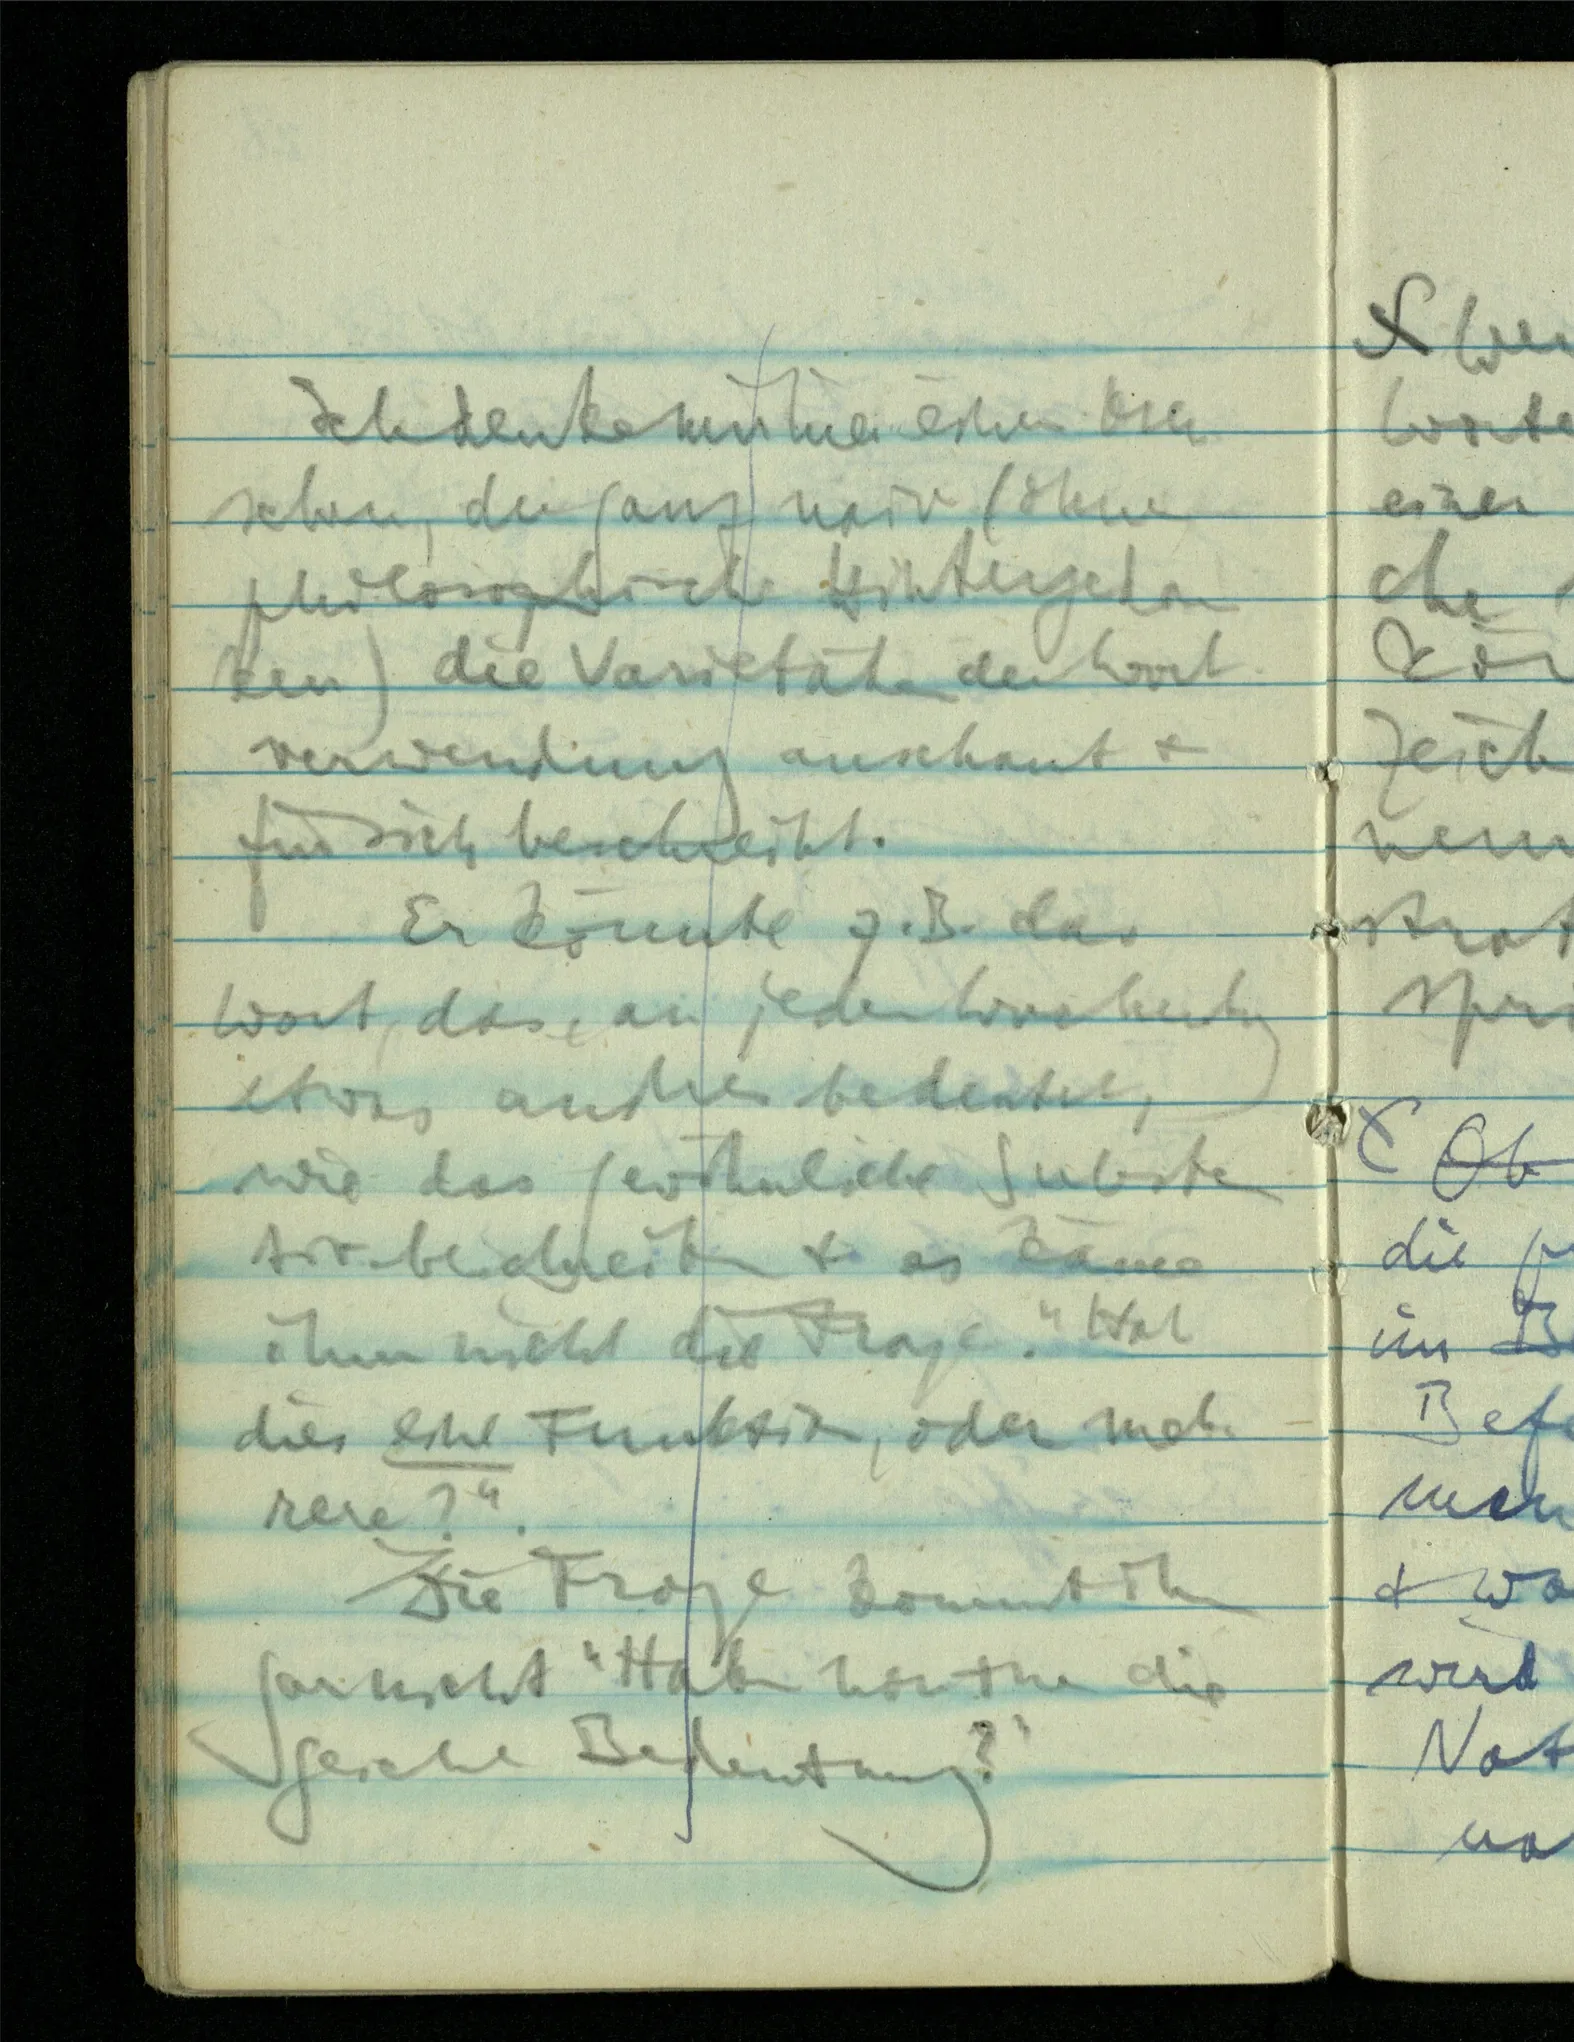 Ich denke mir immer einen Men
schen, der ganz naiv (ohne
philosophische Hintergedan
ken) die Varietäten der Wort
verwendung anschaut &
für sich beschreibt.
Er könnte z.B. das
Wort, das, an jedem Wochentag
etwas andres bedeutet,
wie das gewöhnliche Substan
tiv beschreiben & es käme
ihm nicht die Frage: "Hat
dies eine Funktion, oder meh
rere?".
Die Frage kommt ihm
gar nicht "Haben die
gleiche Bedeutung?"
Worte
einer
che
Zeich
Ob
die
im
Bef
& wa
wird
Not